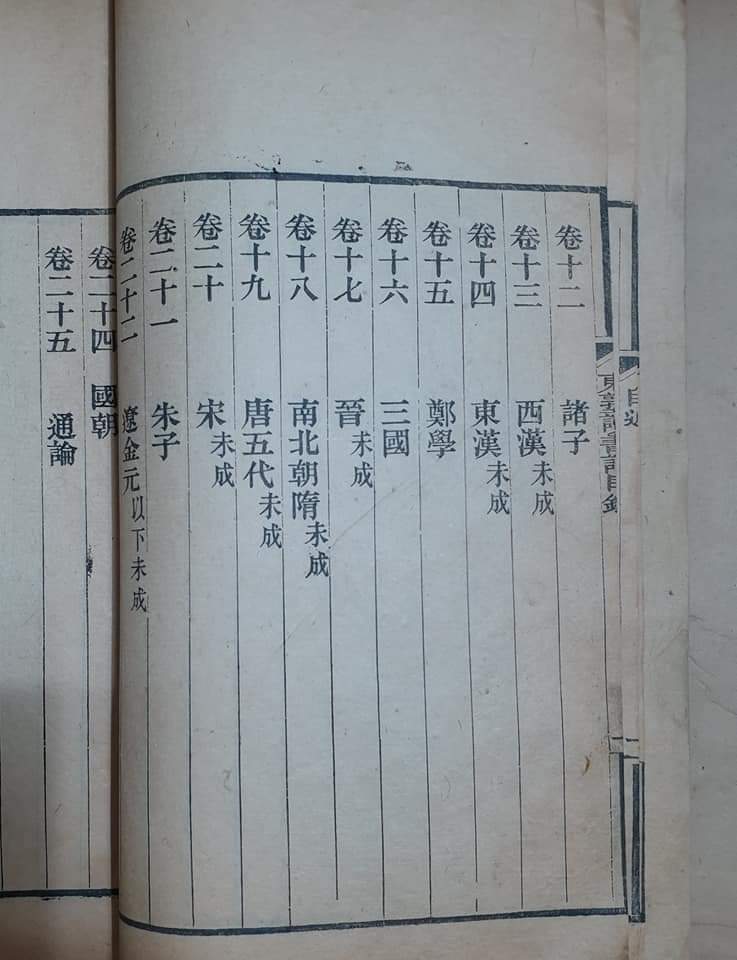 東塾讀書記目錄
卷十二 諸子
卷十三 西漢未成
卷十四 東漢未成
卷十五 鄭學
卷十六 三國
卷十七 晉未成
卷十八 南北朝隋未成
卷十九 唐五代未成
卷二十 宋未成
卷二十一 朱子
卷二十二 遼金元以下未成
卷二十四 國朝
卷二十五 通論